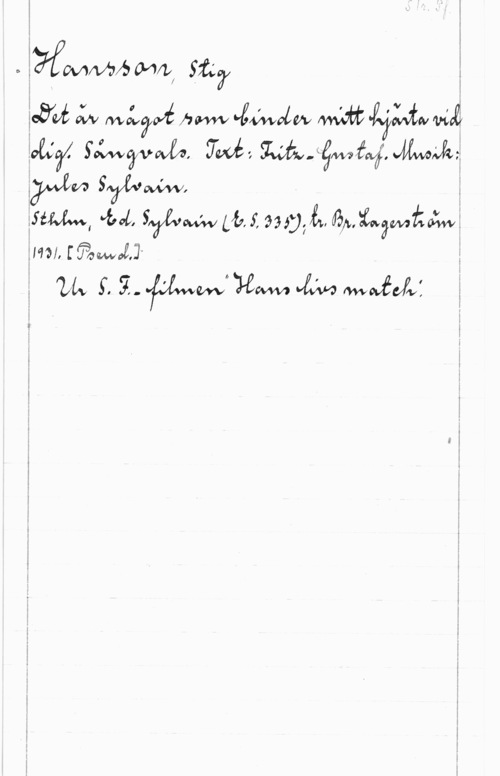 Str. Pf
Hansson, Stig
Det är något som binder mitt hjärta vid
dig. Sångvals. Text: Fritz-Gustaf. Musik:
Jules Sylvain.
Sthlm, Ed. Sylvain (E.S. 335); tr. Br. Lagerström
1931. [Pseud.]
Ur S.F.-filmen "Hans livs match".